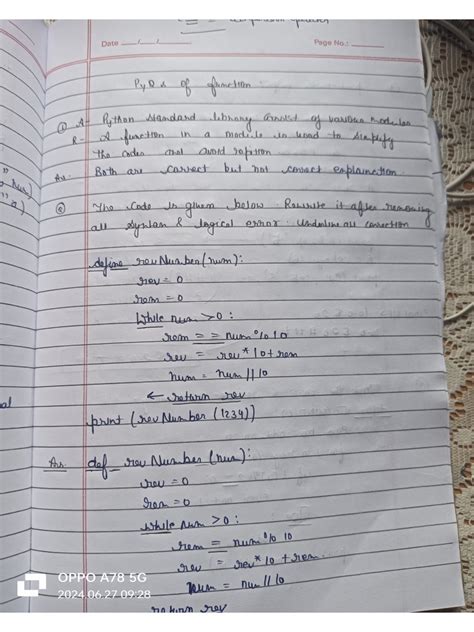 Date ___/___/___ Page No.:
PyQs of function
① A- Python standard library consist of various modules
R- A function in a module is used to simplify
the codes and avoid
Ans. Both are correct but not correct explaination.
② The Code is given below. Rewrite it after removing
all syntax & logical error. Underline all correction
define revNumber(num):
rev = 0
rem = 0
While num > 0:
rem == num % 10
rev = rev * 10 + rem
num = num // 10
← return rev
print (revNumber (1234))
Ans. def revNumber (num):
rev = 0
rem = 0
while num > 0:
rem = num % 10
rev = rev * 10 + rem
num = num // 10
return rev
al
OPPO A78 5G
2024.06.27 09:28